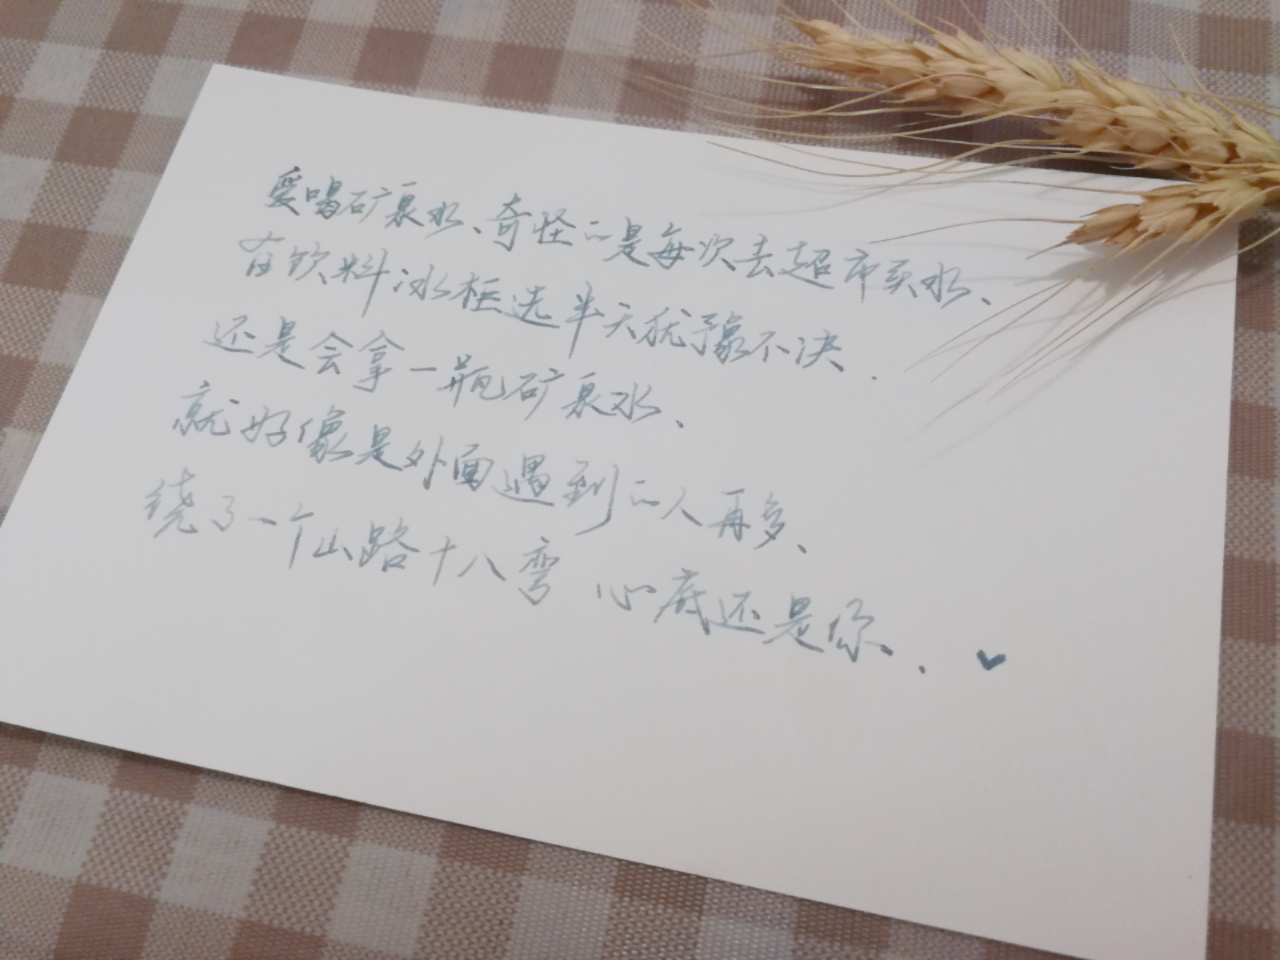 爱喝矿泉水、奇怪的是每次去超市买水、
在饮料冰柜选半天犹豫不决.
还是会拿一瓶矿泉水、
就好像是外面遇到的人再多、
绕了一个山路十八弯 心底还是你..